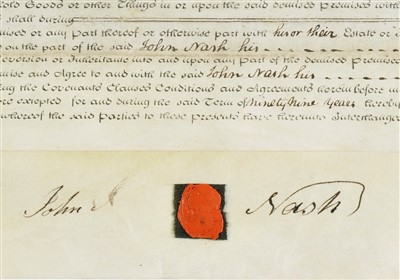 hold Goods or other Things in or upon the said demised Premises with
shall during
mised or any Part thereof or otherwise part with his or their Estate or
on the part of the said John Nash his
Reversion or Inheritance into and upon any Part of the demised Premises
mise and Agree to and with the said John Nash his
ing the Covenants Clauses Conditions and Agreements therein before
ore excepted for and during the said Term of Ninety Nine Years hereby
whereof the said Parties to these Presents have hereunto Interchange
John Nash